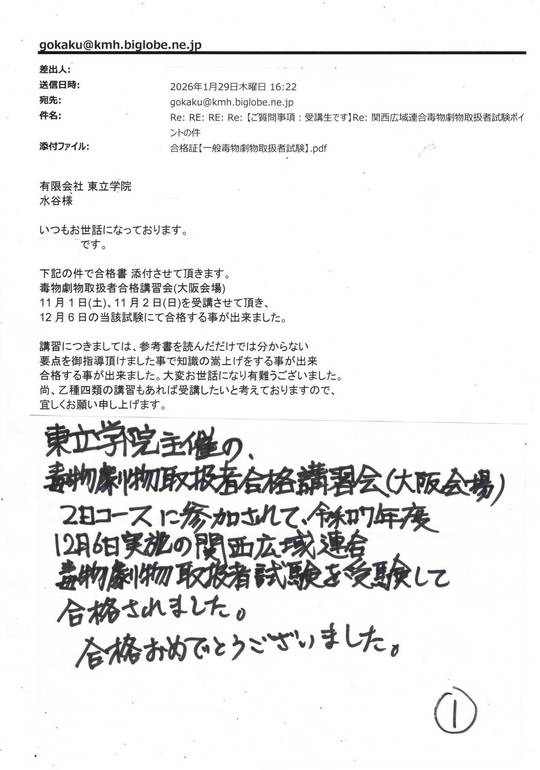 gokaku@kmh.biglobe.ne.jp
差出人:
送信日時: 2026年1月29日木曜日 16:22
宛先: gokaku@kmh.biglobe.ne.jp
件名: Re: RE: RE: Re: 【ご質問事項：受講生です】Re: 関西広域連合毒物劇物取扱者試験ポイ
ントの件
添付ファイル: 合格証【一般毒物劇物取扱者試験】.pdf
有限会社 東立学院
水谷様
いつもお世話になっております。
です。
下記の件で合格書 添付させて頂きます。
毒物劇物取扱者合格講習会(大阪会場)
11月1日(土)、11月2日(日)を受講させて頂き、
12月6日の当該試験にて合格する事が出来ました。
講習につきましては、参考書を読んだだけでは分からない
要点を御指導頂けました事で知識の嵩上げをする事が出来
合格する事が出来ました。大変お世話になり有難うございました。
尚、乙種四類の講習もあれば受講したいと考えておりますので、
宜しくお願い申し上げます。
東立学院主催の、
毒物劇物取扱者合格講習会(大阪会場)
2日コースに参加されて、令和7年度
12月6日実施の関西広域連合
毒物劇物取扱者試験を受験して
合格されました。
合格おめでとうございました。
1